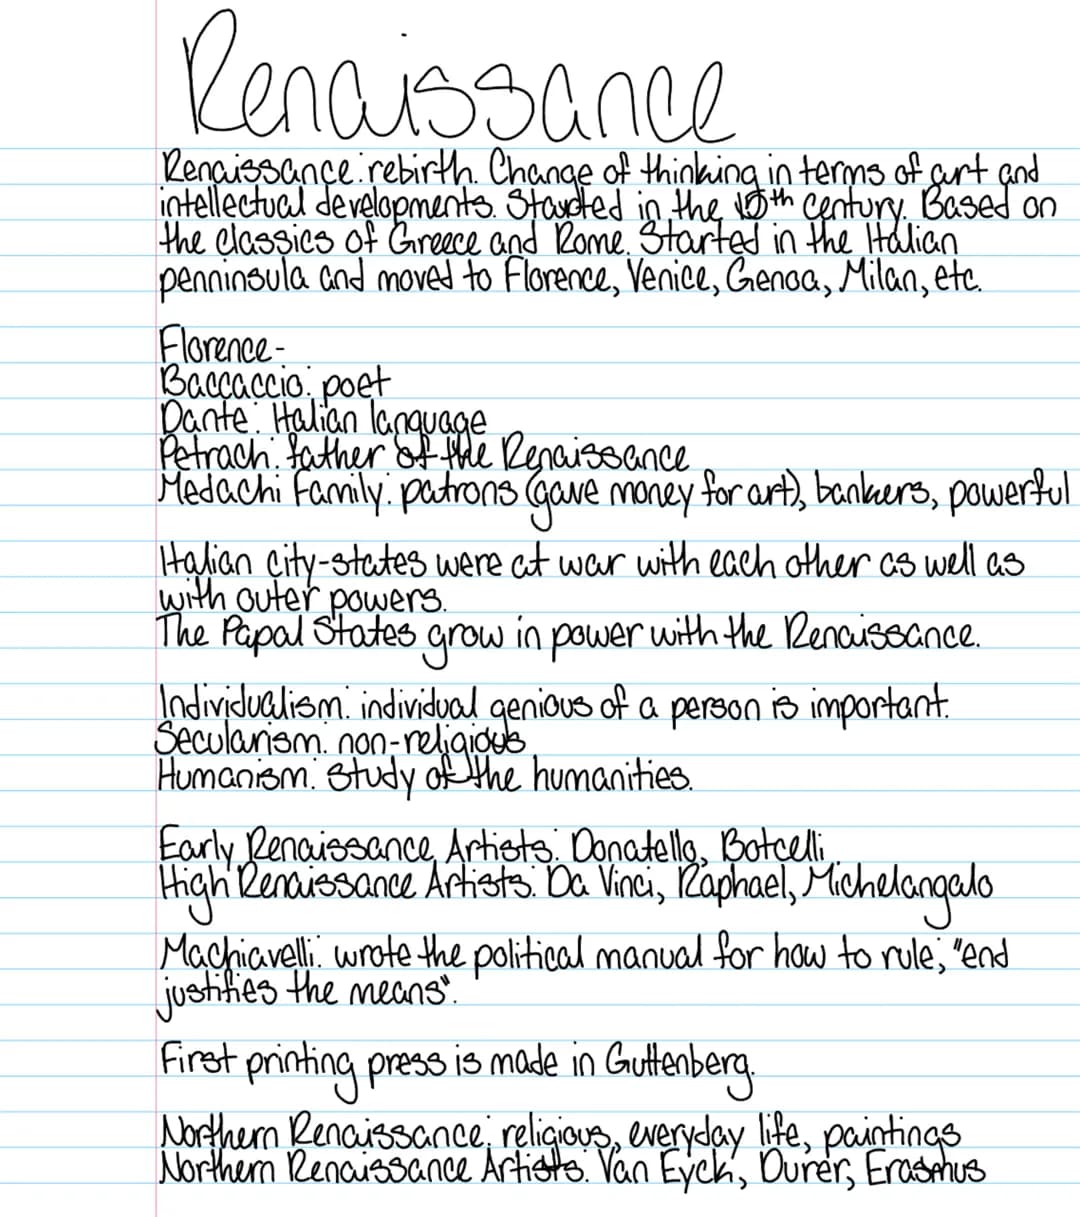 Renaissance
Renaissance: rebirth. Change of thinking in terms of art and
intellectual developments. Started in the 15th century. Based on
the classics of Greece and Rome. Started in the Italian
penninsula and moved to Florence, Venice, Genoa, Milan, etc.
Florence-
Baccaccio: poet
Dante: Italian language
Petrach: father of the Renaissance
Medachi Family: patrons (gave money for art), bankers, powerful
Italian city-states were at war with each other as well as
with outer powers.
The Papal States grow in power with the Renaissance.
Individualism: individual genious of a person is important.
Secularism: non-religious
Humanism: study of the humanities.
Early Renaissance Artists: Donatello, Botcelli
High Renaissance Artists: Da Vinci, Raphael, Michelangalo
Machiavelli: wrote the political manual for how to rule; "end
justifies the means".
First printing press is made in Guttenberg.
Northern Renaissance: religious, everyday life, paintings
Northern Renaissance Artists: Van Eyck, Durer, Erasmus